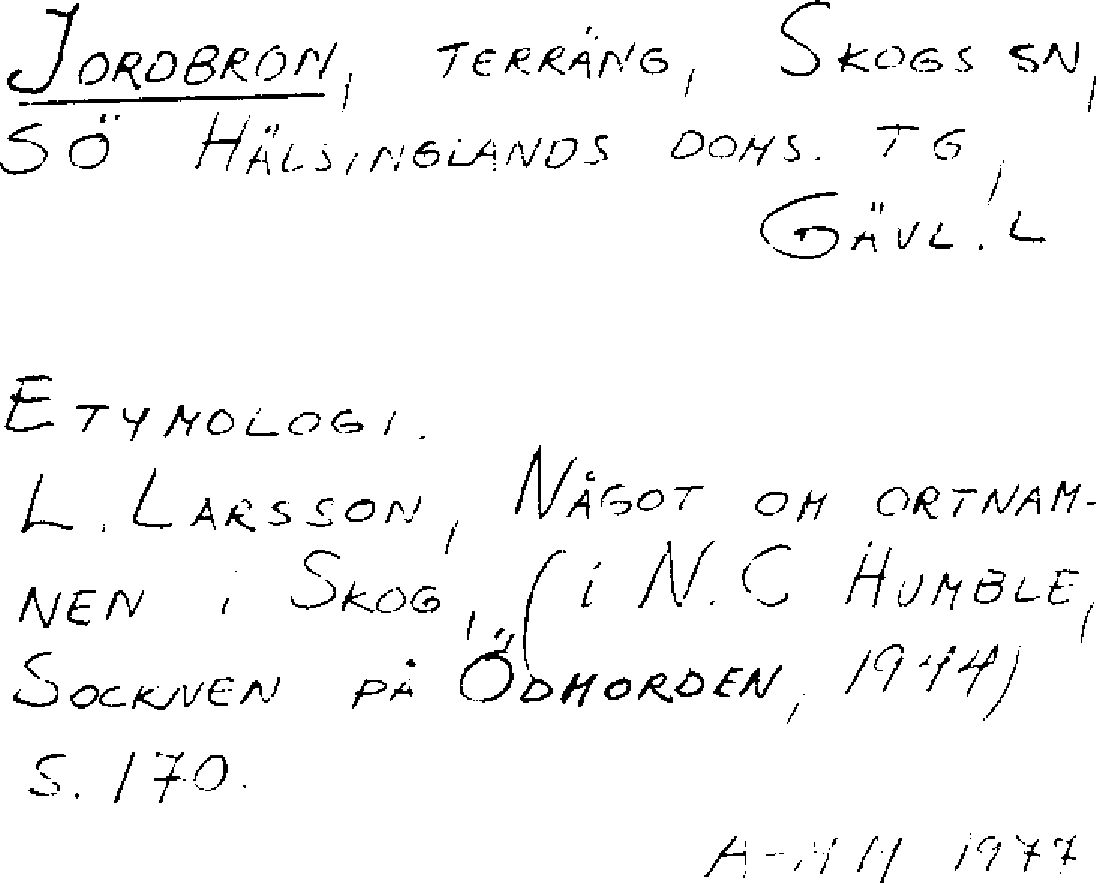 JORDBRON, TERRÄNG, SKOGS SN,
SÖ HÄLSINGLANDS DOMS. TG,
GÄVL. L
ETYMOLOGI.
L. LARSSON, NÅGOT OM ORTNAM-
NEN i SKOG, (i N.C HUMBLE,
SOCKNEN PÅ ÖDMORDEN, 1944)
S. 170.
A-MM 1977